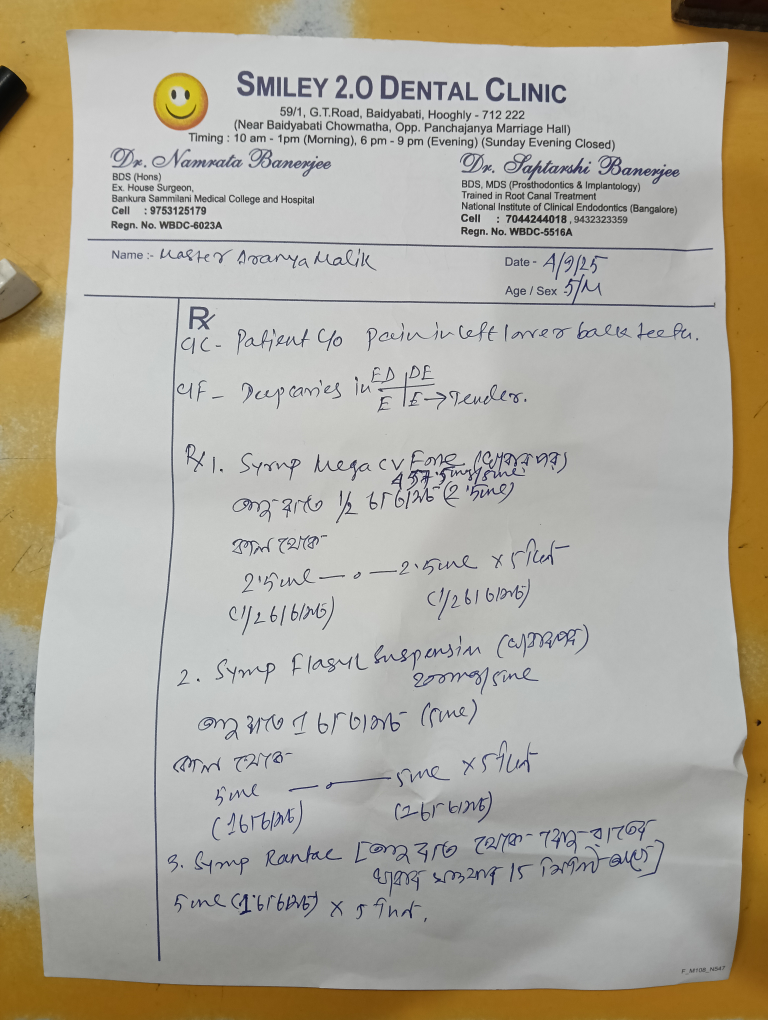 SMILEY 2.0 DENTAL CLINIC
59/1, G.T.Road, Baidyabati, Hooghly - 712 222
(Near Baidyabati Chowmatha, Opp. Panchajanya Marriage Hall)
Timing : 10 am - 1pm (Morning), 6 pm - 9 pm (Evening) (Sunday Evening Closed)
Dr. Namrata Banerjee
BDS (Hons)
Ex. House Surgeon,
Bankura Sammilani Medical College and Hospital
Cell : 9753125179
Regn. No. WBDC-6023A
Dr. Saptarshi Banerjee
BDS, MDS (Prosthodontics & Implantology)
Trained in Root Canal Treatment
National Institute of Clinical Endodontics (Bangalore)
Cell : 7044244018 , 9432323359
Regn. No. WBDC-5516A
Name :- Master Aranya Malik
Date - 4/9/25
Age / Sex 5/M
Rx
C/C - Patient c/o pain in left lower back teeth.
O/F - Deep caries in ED | DE
E | E → Tender.
Rx 1. Syrup Megacv Forte (খাবার পর)
457.5mg/5ml
আজ রাতে 1/2 চামচ (2.5ml)
কাল থেকে
2.5ml — 0 — 2.5ml x 5 দিন
(1/2 চামচ) (1/2 চামচ)
2. Syrup Flagyl Suspension (খাবার পর)
200mg/5ml
আজ রাতে 1 চামচ (5ml)
কাল থেকে
5ml — 0 — 5ml x 5 দিন
(1 চামচ)
3. Syrup Rantac [আজ রাত থেকে রোজ রাতের
খাবার খাওয়ার 15 মিনিট আগে]
5ml (1 চামচ) x 5 দিন.
F_M108_N547